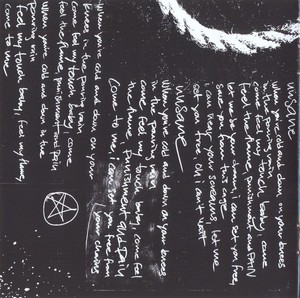 insane
When you're cold and down on your knees
in the pouring rain
come feel my touch, baby, come
feel the flame, punishment and PAIN
let me be your clown, i can set you free,
save you from the
i can hear your screams, let me
set you free, oh i can't wait
insane
When you're cold and down on your knees
in the pouring rain
come feel my touch baby, come feel
the flame, PUNISHMENT and PAIN
Come to me, i can set you free from
your chains
When you're cold and down on your
knees in the pouring rain
come feel my touch, baby, come
feel the flame, punishment and pain
When you're cold and down in the
pouring rain
feel my touch baby, feel my flame,
come to me